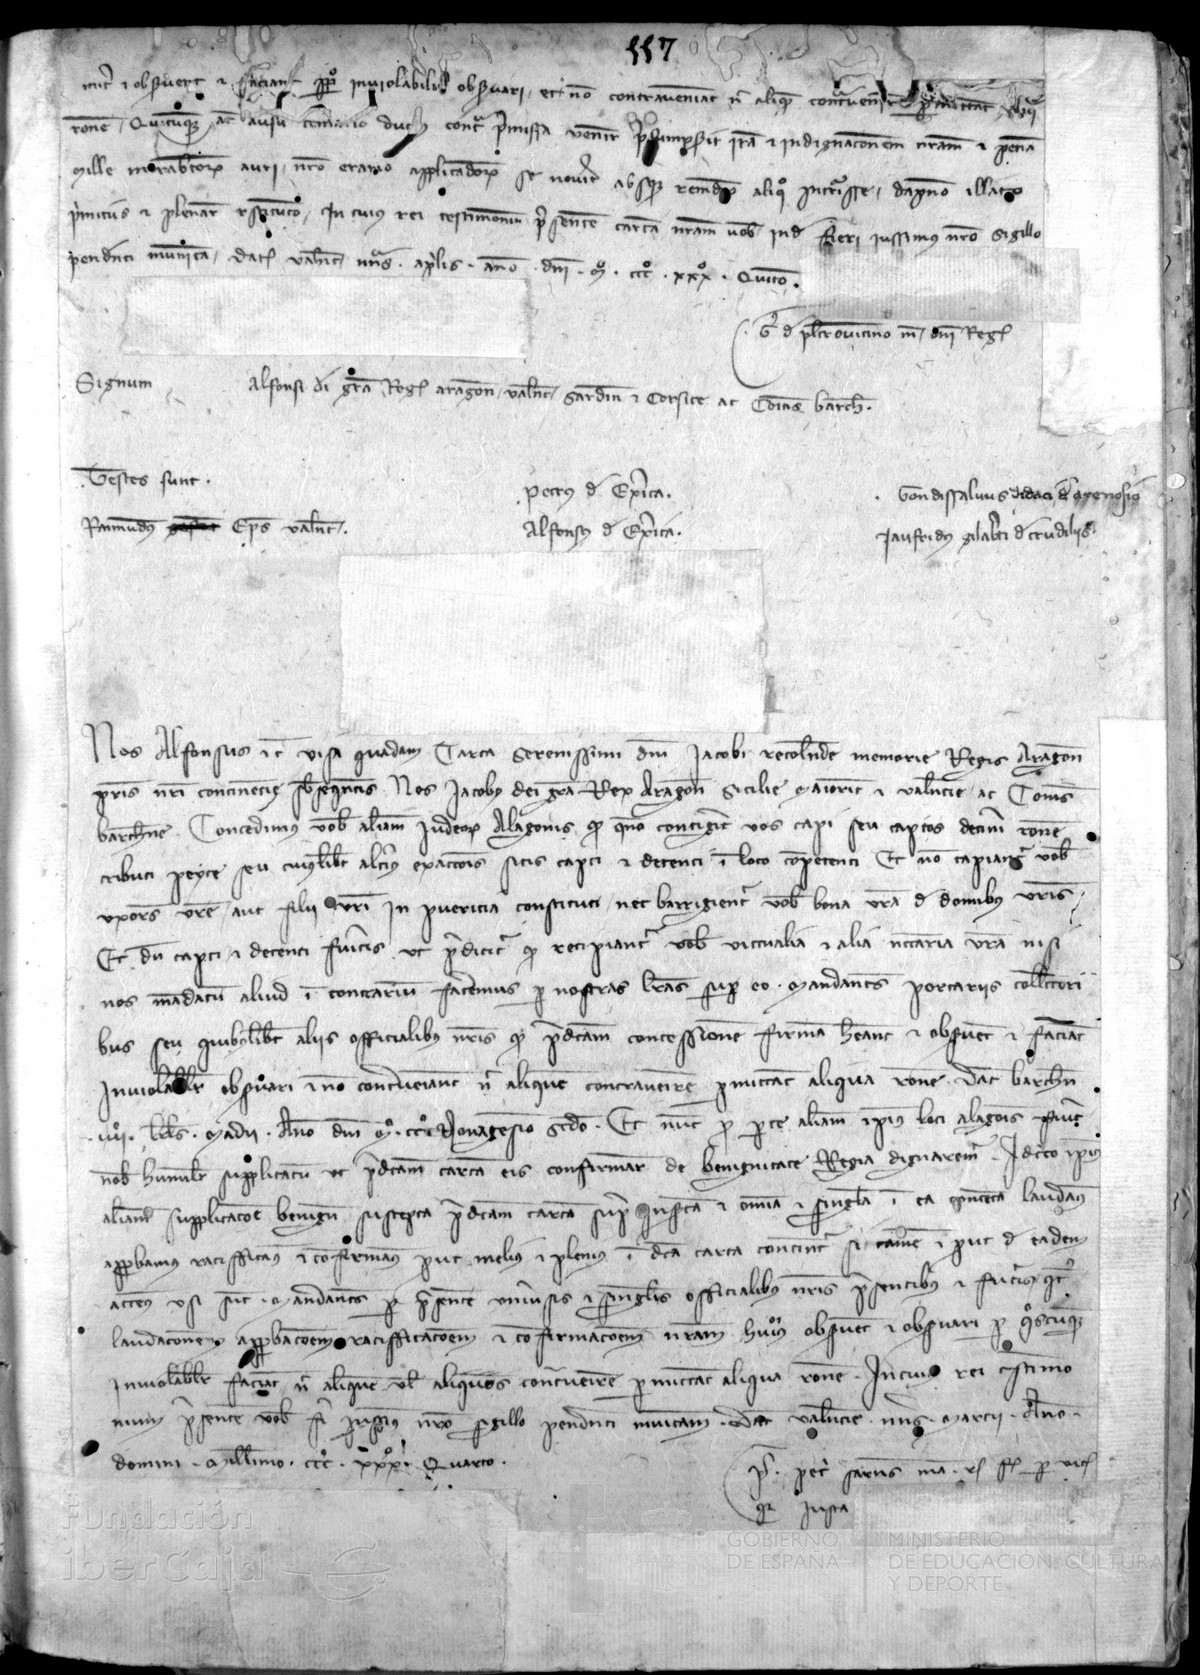 117
mit et observent et faciant perpetuo inviolabiliter observari et non contraveniant nec aliquem contravenire permittant aliqua
ratione. Quicumque autem ausu temerario ductus contra premissa venire presumpserit iram et indignacionem nostram et penam
Mille morabatinorum auri nostro erario applicandorum se noverit absque remedio aliquo incurrisse, dampno illato
primitus et plenarie restituto. In cuius rei testimonium presentem cartam nostram vobis inde fieri iussimus nostro sigillo
pendenti munitam. Dat Valencie nonas aprilis anno domini Mº CCCº XXXº Quinto.
Signum Alfonsi dei gratia Regis aragonum, valencie, Sardinie et Corsice ac Comitis barchinone.
Testes sunt.
Petrus de Exerica.
Gondissalvus didaci de arenosio
Raimundus Eps valencie.
Alfonsus de Exerica.
Jaufridus gilaberti de crudiliis
Nos Alfonsus etc visa quadam Carta Serenissimi dni Jacobi recolende memorie Regis Aragonum
patris nostri continencie subsequentis. Nos Jacobus dei gratia Rex Aragonum Sicilie Maioricarum et valencie ac Comes
barchinone. Concedimus vobis aliame Judeorum Alagonis quod quando contigerit vos capi seu captos detineri ratione
tributi peyte seu cuiuslibet alterius exaccionis sitis capti et detenti in loco competenti Et non capiantur vobis
uxores vestre aut filii vestri in puericia constituti nec barrigientur vobis bona vestra de domibus vestris,
Et dum capti et detenti fueritis ut predicitur quod recipiantur vobis victualia et alia necessaria vestra nisi
nos mandatum aliud in contrarium facemus per nostras literas super eo. Mandantes portariis collectori
bus seu quibuslibet aliis officialibus nostris quod predictam concessionem firmam habeant et observent et faciant
Inviolabiliter observari et non contraveniant nec aliquem contravenire permittant aliqua ratione. Dat barchinone
IIII kalendas Madii Anno domini Mº CCº Nonagesimo secundo. Et nunc pro parte aliame ipsius loci alagonis fuerit
nobis humiliter supplicatum ut predictam cartam eis confirmare de benignitate Regia dignaremur. Idcirco ipsius
aliame supplicacione benigne suscepta predictam cartam supra insertam et omnia et singula in ea contenta laudamus
approbamus ratifficamus et confirmamus prout melius et plenius in dicta carta continetur si tamen et prout de eadem
actenus usi sunt. Mandantes per presentem universis et singulis officialibus nostris presentibus et futuris quod
laudacionem approbacionem ratifficacionem et confirmacionem nostram huiusmodi observent et observari per quoscumque
Inviolabiliter faciant nec aliquem vel aliquos contravenire permittant aliqua ratione. In cuius rei testimo
nium presentem vobis fieri iussimus nostro sigillo pendenti munitam. Dat valencie nonas Marcii Anno
domini Millesimo CCCº XXXº Quarto.
Fundación
iberCaja
GOBIERNO
DE ESPAÑA
MINISTERIO
DE EDUCACION, CULTURA
Y DEPORTE